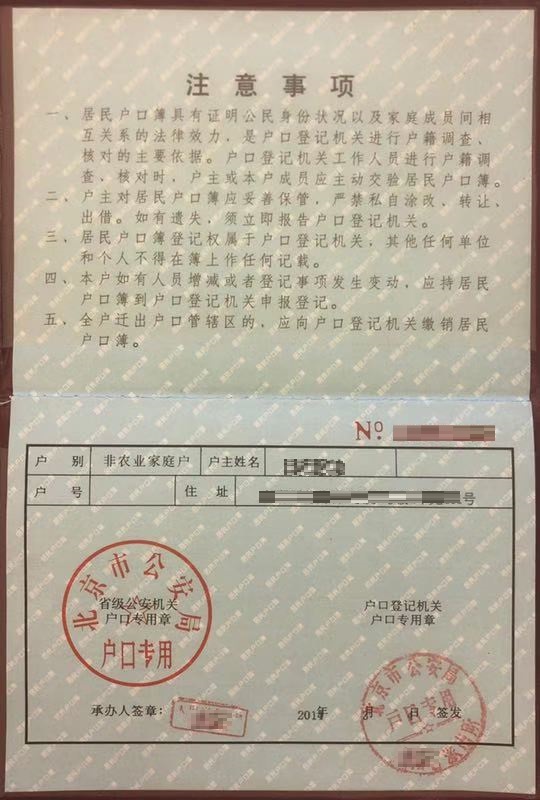 注意事项
一、居民户口簿具有证明公民身份状况以及家庭成员间相
互关系的法律效力，是户口登记机关进行户籍调查、
核对的主要依据。户口登记机关工作人员进行户籍调
查、核对时，户主或本户成员应主动交验居民户口簿。
二、户主对居民户口簿应妥善保管，严禁私自涂改、转让、
出借。如有遗失，须立即报告户口登记机关。
三、居民户口簿登记权属于户口登记机关，其他任何单位
和个人不得在簿上作任何记载。
四、本户如有人员增减或者登记事项发生变动，应持居民
户口簿到户口登记机关申报登记。
五、全户迁出户口管辖区的，应向户口登记机关缴销居民
户口簿。
No.
户别 非农业家庭户 户主姓名
户号 住址 号
北京市公安局
省级公安机关
户口专用章
户口专用
户口登记机关
户口专用章
北京市公安局
户口专用
承办人签章：
年 月 日 签发